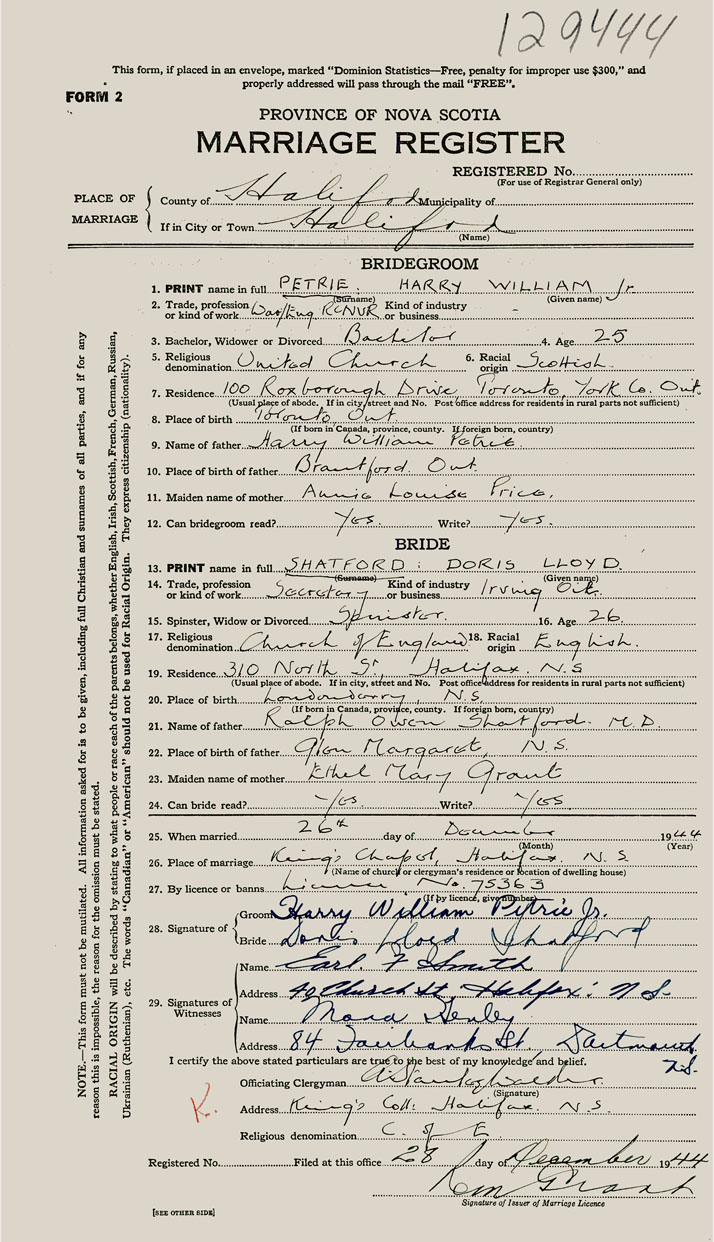 129444
This form, if placed in an envelope, marked "Dominion Statistics—Free, penalty for improper use $300," and
properly addressed will pass through the mail "FREE".
FORM 2
PROVINCE OF NOVA SCOTIA
MARRIAGE REGISTER
REGISTERED No.
(For use of Registrar General only)
PLACE OF MARRIAGE
County of Halifax Municipality of
If in City or Town Halifax
(Name)
BRIDEGROOM
1. PRINT name in full PETRIE : HARRY WILLIAM Jr.
(Surname) (Given name)
2. Trade, profession or kind of work RCNVR Kind of industry or business -
3. Bachelor, Widower or Divorced Bachelor 4. Age 25
5. Religious denomination United Church 6. Racial origin Scottish.
7. Residence 100 Roxborough Drive, Toronto, York Co. Ont.
(Usual place of abode. If in city, street and No. Post office address for residents in rural parts not sufficient)
8. Place of birth Toronto, Ont.
(If born in Canada, province, county. If foreign born, country)
9. Name of father Harry William Petrie.
10. Place of birth of father Brantford. Ont.
11. Maiden name of mother Annie Louise Price.
12. Can bridegroom read? Yes. Write? Yes.
BRIDE
13. PRINT name in full SHATFORD : DORIS LLOYD.
(Surname) (Given name)
14. Trade, profession or kind of work Secretary Kind of industry or business Irving Oil.
15. Spinster, Widow or Divorced Spinster. 16. Age 26.
17. Religious denomination Church of England 18. Racial origin English.
19. Residence 310 North St, Halifax. N.S
(Usual place of abode. If in city, street and No. Post office address for residents in rural parts not sufficient)
20. Place of birth Londonderry, N.S.
(If born in Canada, province, county. If foreign born, country)
21. Name of father Ralph Owen Shatford. M.D.
22. Place of birth of father Glen Margaret, N.S.
23. Maiden name of mother Ethel Mary Grant
24. Can bride read? Yes. Write? Yes
25. When married 26th day of December 1944
(Month) (Year)
26. Place of marriage King's Chapel, Halifax. N.S.
(Name of church or clergyman's residence or location of dwelling house)
27. By licence or banns Licence No. 75363
(If by licence, give number)
28. Signature of
Groom Harry William Petrie Jr.
Bride Doris Lloyd Shatford
29. Signatures of Witnesses
Name Earl. F Smith
Address 40 Church St, Halifax. N S.
Name Henley
Address 84 Fairbanks St. Dartmouth
N.S.
I certify the above stated particulars are true to the best of my knowledge and belief.
Officiating Clergyman
(Signature)
K.
Address King's Coll. Halifax. N.S.
Religious denomination C. of E.
Registered No. Filed at this office 28 day of December 1944
Grant
Signature of Issuer of Marriage Licence
[SEE OTHER SIDE]
NOTE.—This form must not be mutilated. All information asked for is to be given, including full Christian and surnames of all parties, and if for any
reason this is impossible, the reason for the omission must be stated.
RACIAL ORIGIN will be described by stating to what people or race each of the parents belongs, whether English, Irish, Scottish, French, German, Russian,
Ukrainian (Ruthenian), etc. The words "Canadian" or "American" should not be used for Racial Origin. They express citizenship (nationality).